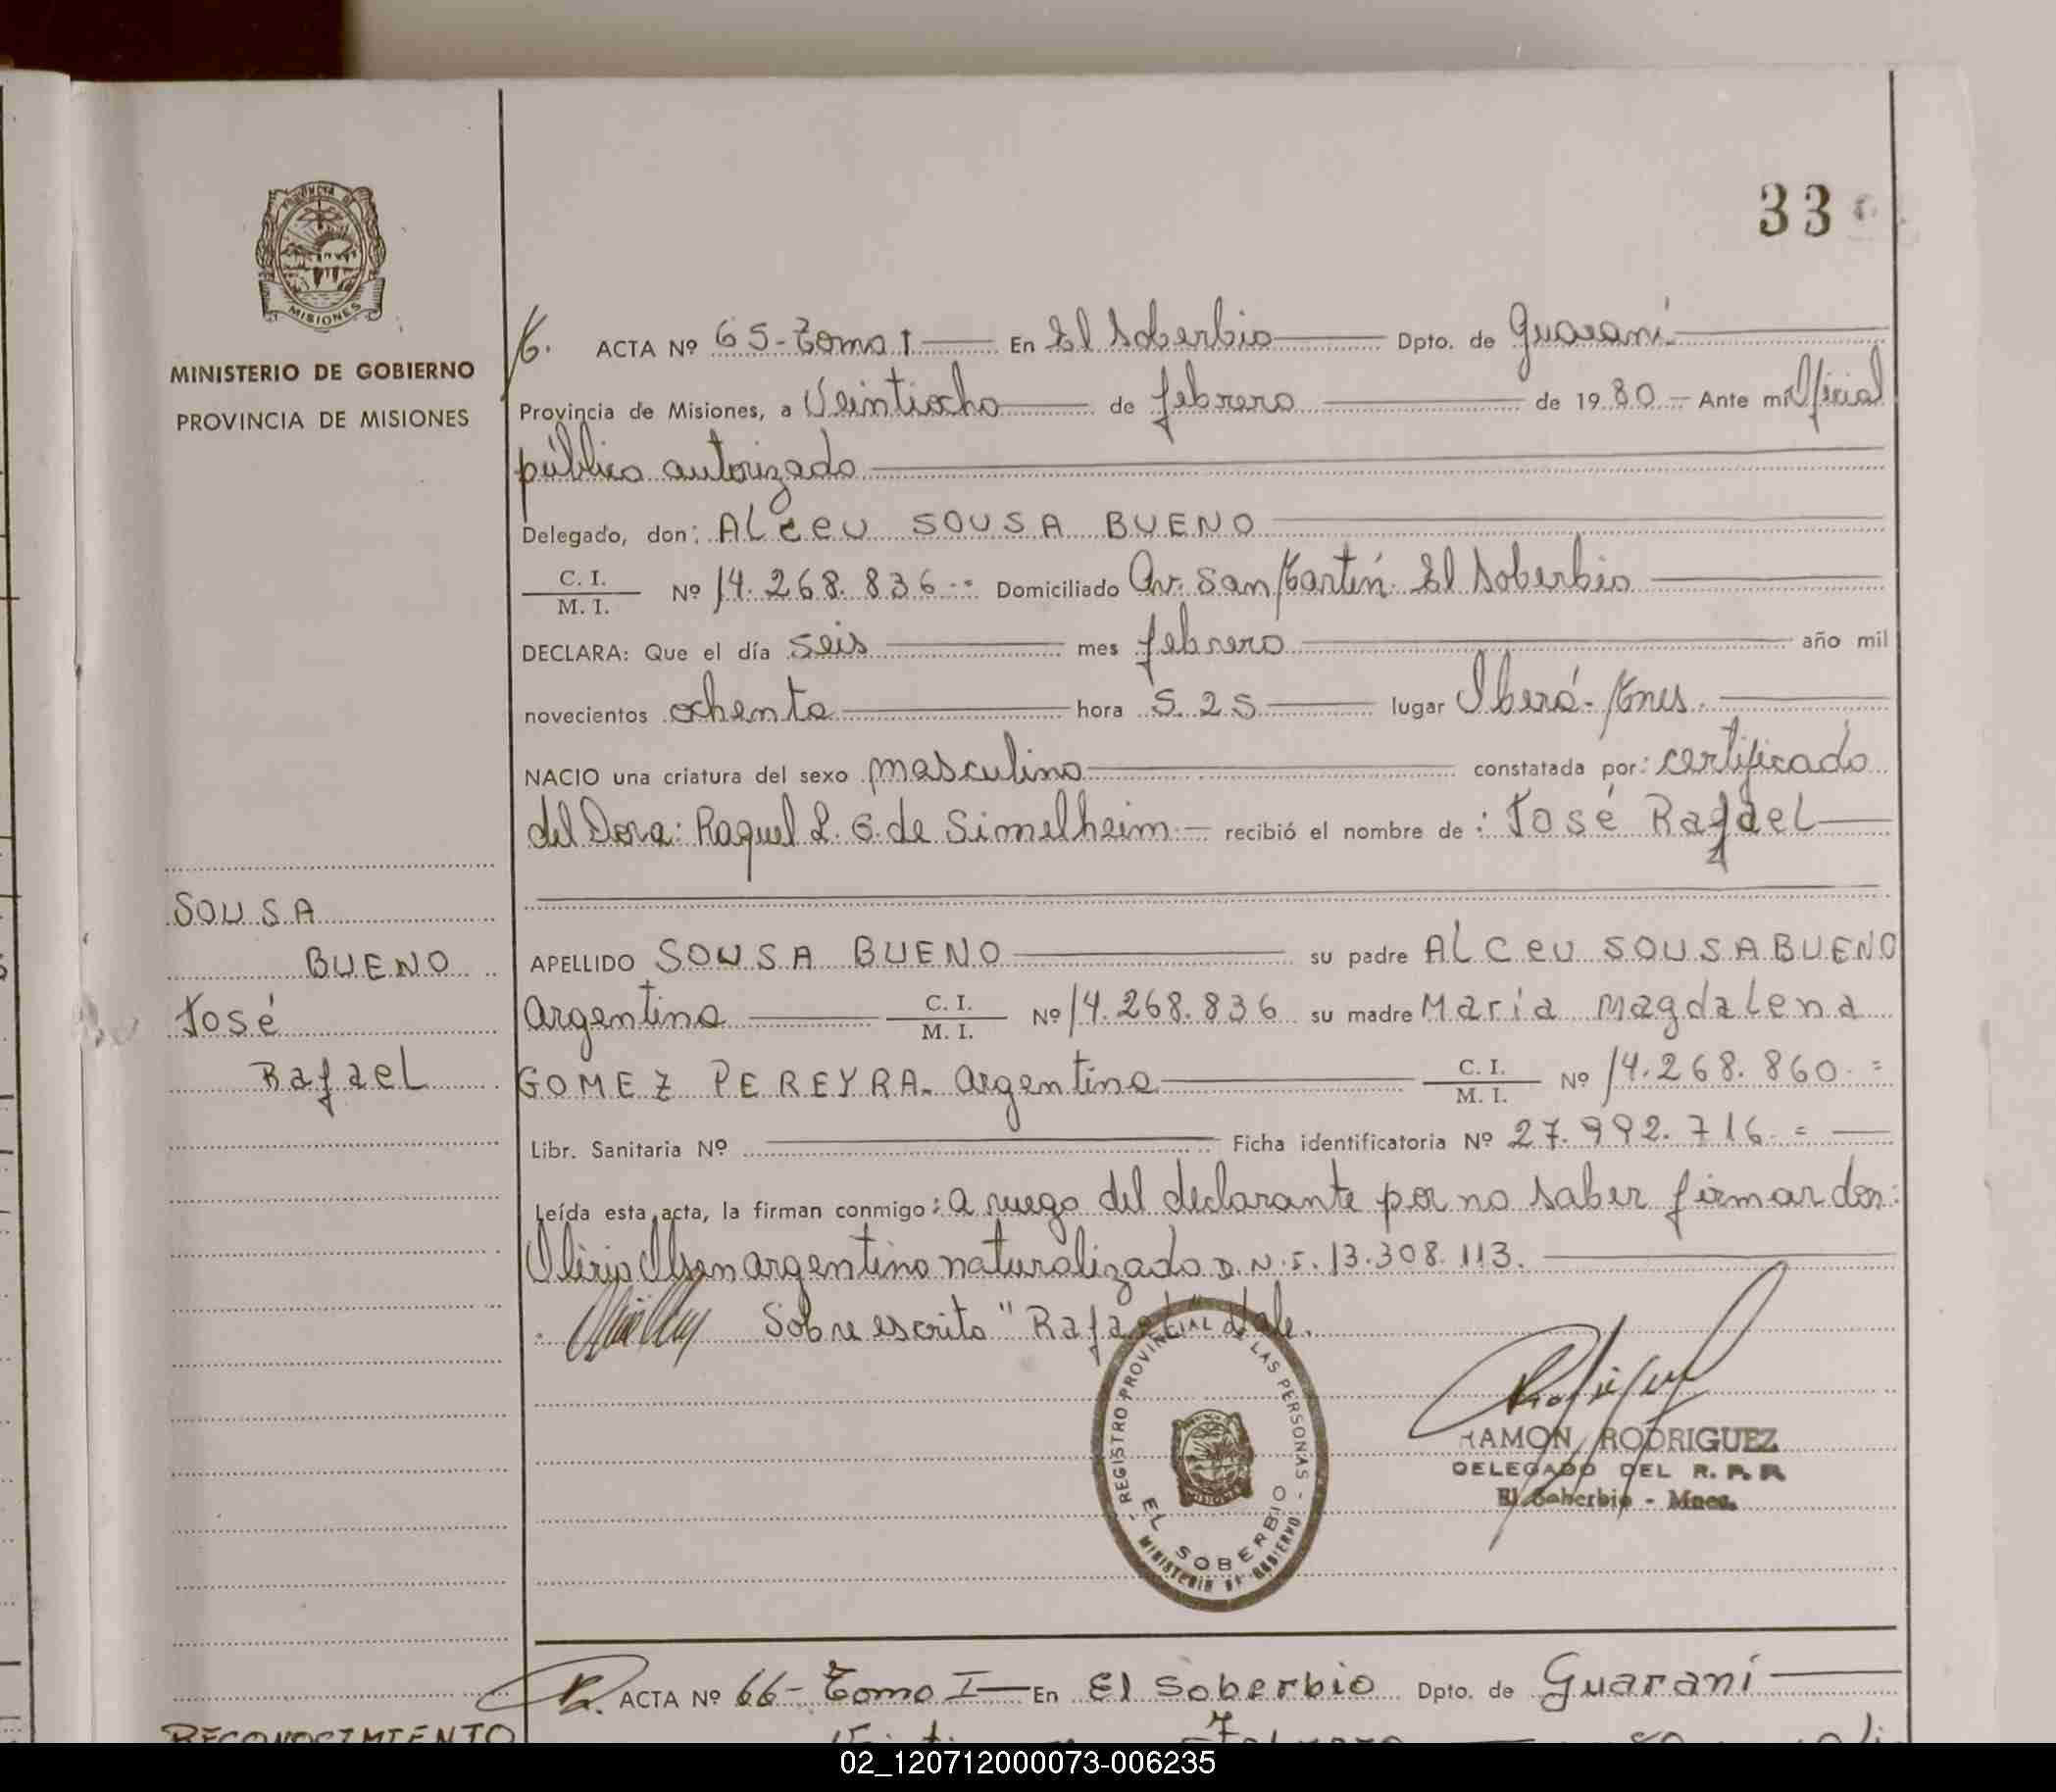 33
PROVINCIA DE
MISIONES
MINISTERIO DE GOBIERNO
PROVINCIA DE MISIONES
SOUSA
BUENO
José
Rafael
ACTA Nº 65-Tomo I En El Soberbio Dpto. de Guaraní
Provincia de Misiones, a Veintiocho de febrero de 1980 Ante mi Oficial
público autorizado
Delegado, don: ALceu SOUSA BUENO
C. I.
M. I. Nº 14.268.836 Domiciliado Av. San Martín. El Soberbio
DECLARA: Que el día seis mes febrero año mil
novecientos ochenta hora 5.25 lugar Iberá-Mnes.
NACIO una criatura del sexo masculino constatada por: certificado
del Dora: Raquel L. G. de Simelheim. recibió el nombre de: José Rafael
APELLIDO SOUSA BUENO su padre ALceu SOUSA BUENO
Argentino C. I.
M. I. Nº 14.268.836 su madre María Magdalena
GOMEZ PEREYRA. Argentina C. I.
M. I. Nº 14.268.860.=
Libr. Sanitaria Nº Ficha identificatoria Nº 27.992.716.=
Leída esta acta, la firman conmigo: a ruego del declarante por no saber firmar don:
Olirio Olsen argentino naturalizado D.N.I. 13.308.113.
Sobre escrito "Rafael" Vale.
- REGISTRO PROVINCIAL DE LAS PERSONAS -
EL SOBERBIO
MINISTERIO DE GOBIERNO
RAMON RODRIGUEZ
DELEGADO DEL R. P. P.
El Soberbio - Mnes.
ACTA Nº 66- Tomo I En El Soberbio Dpto. de Guaraní
RECONOCIMIENTO
02_120712000073-006235